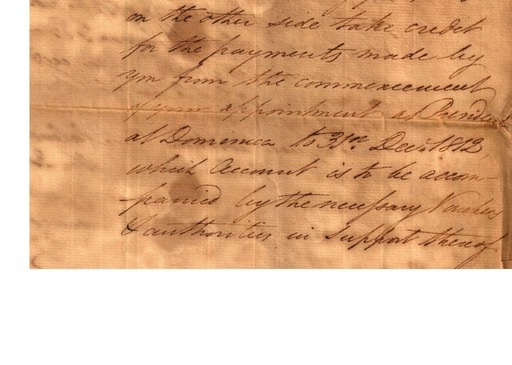 on the other side take credit
for the payments made by
you from the commencement
of your appointment as Presiden
at Dominica to 31st Decr. 1812,
which Account is to be accom-
panied by the necessary Vouchers
& authorities in Support thereof